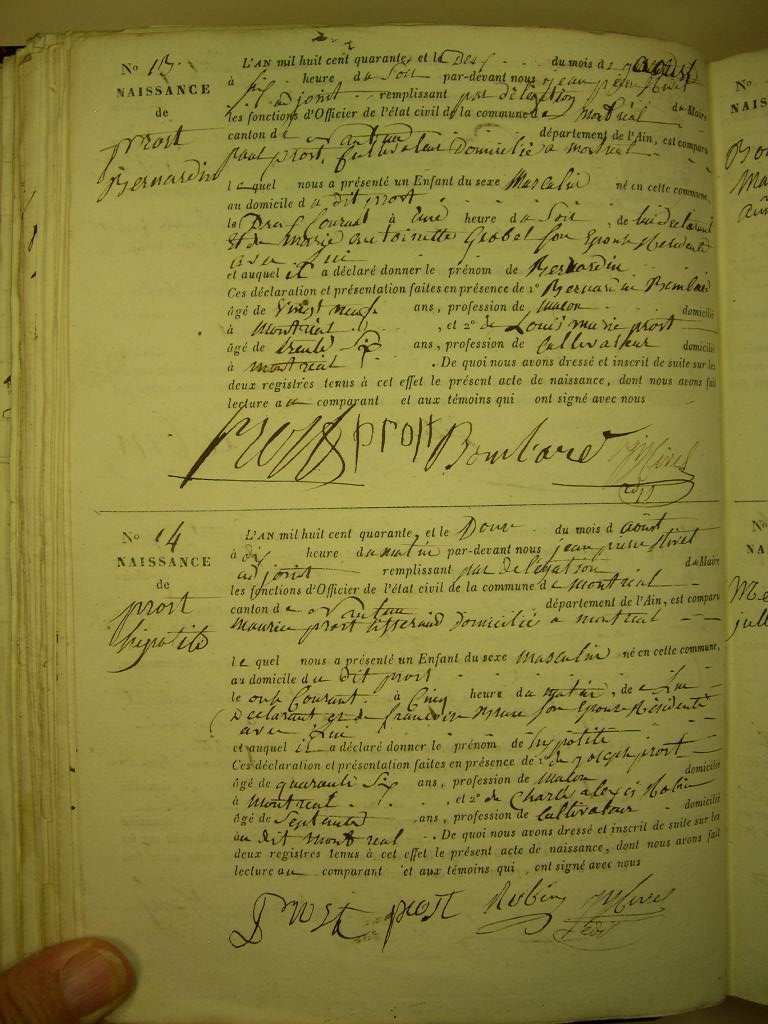 N.o 13.
NAISSANCE
de
prost
Bernardin
L'AN mil huit cent quarante, et le du mois d aoust
à six heure du Soir par-devant nous jean pierre
adjoint remplissant par délégation du Maire
les fonctions d'Officier de l'état civil de la commune de Montréal
canton de Nantua département de l'Ain, est comparu
paul prost, Cultivateur Domicilié a montreal
lequel nous a présenté un Enfant du sexe Masculin né en cette commune,
au domicile du dit prost
le Courant à une heure du Soir, de lui déclarant
et de marie antoinette Grobet son Epouse Residente
avec lui
et auquel il a déclaré donner le prénom de Bernardin
Ces déclaration et présentation faites en présence de 1° Bernardin
âgé de vingt neuf ans, profession de maçon domicilié
à Montréal, et 2° de Louis marie prost
âgé de trente Six ans, profession de Cultivateur domicilié
à montreal. De quoi nous avons dressé et inscrit de suite sur les
deux registres tenus à cet effet le présent acte de naissance, dont nous avons fait
lecture au comparant et aux témoins qui ont signé avec nous
prost prost Bombard
N.o 14
NAISSANCE
de
prost
hipolite
L'AN mil huit cent quarante, et le Douze du mois d aoust
à dix heure du matin par-devant nous jean pierre
adjoint remplissant par délégation du Maire
les fonctions d'Officier de l'état civil de la commune de montréal
canton de Nantua département de l'Ain, est comparu
maurice prost tisserand Domicilié a montreal
lequel nous a présenté un Enfant du sexe Masculin né en cette commune,
au domicile du dit prost
le onze Courant à Cinq heure du matin, de Lui
Déclarant et de francoise son Epouse Résidente
avec Lui
et auquel il a déclaré donner le prénom de hipolite
Ces déclaration et présentation faites en présence de 1° de joseph prost
âgé de quarante Six ans, profession de maçon domicilié
à Montreal, et 2° de Charle alexis Robin
âgé de Septante ans, profession de Cultivateur domicilié
au dit montreal. De quoi nous avons dressé et inscrit de suite sur les
deux registres tenus à cet effet le présent acte de naissance, dont nous avons fait
lecture au comparant et aux témoins qui ont signé avec nous
Prost prost Robin